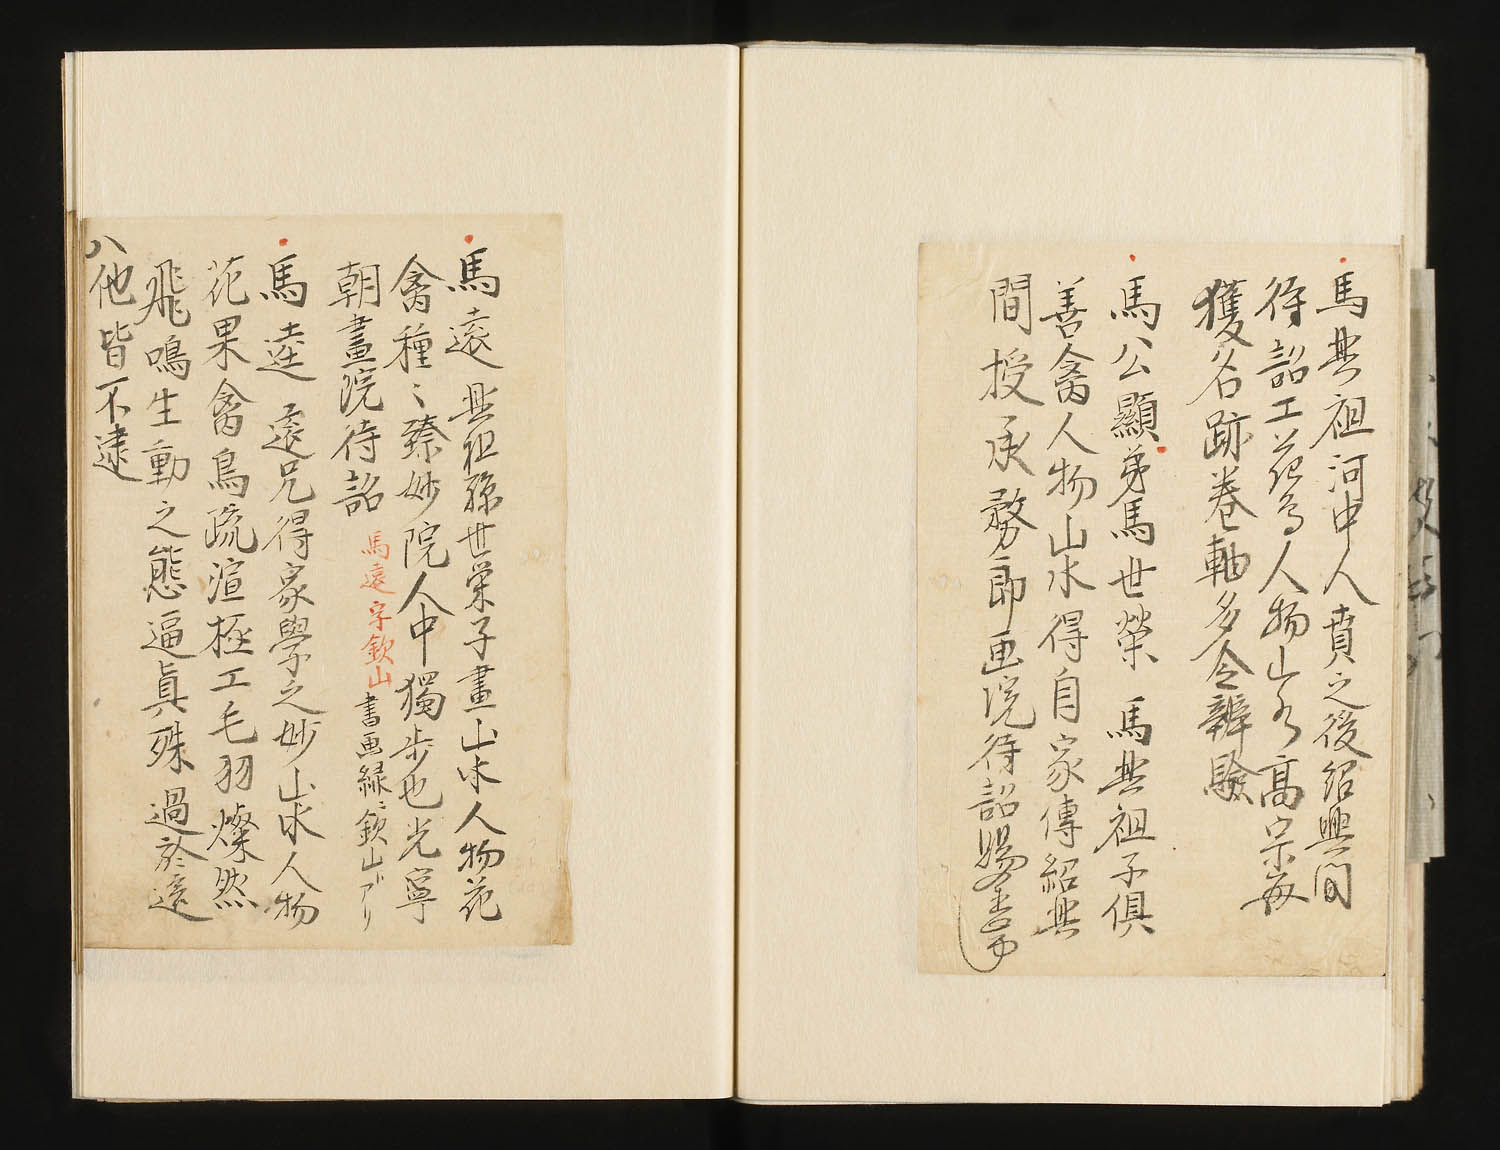 馬興祖河中人賁之後紹興間
待詔工花鳥人物山水高宗每
獲名跡卷軸多令辨驗
馬公顯弟馬世榮 馬興祖子俱
善禽人物山水得自家傳紹興
間授承務郎画院待詔賜金帯
馬遠 興祖孫世栄子畫山水人物花
禽種〻臻妙院人中獨步也光寧
朝畫院待詔 馬遠字欽山 書画縁ニ欽山ドアリ
馬逵 遠兄得家學之妙山水人物
花果禽鳥疏渲極工毛羽燦然
飛鳴生動之態逼真殊過於遠
他皆不逮
八